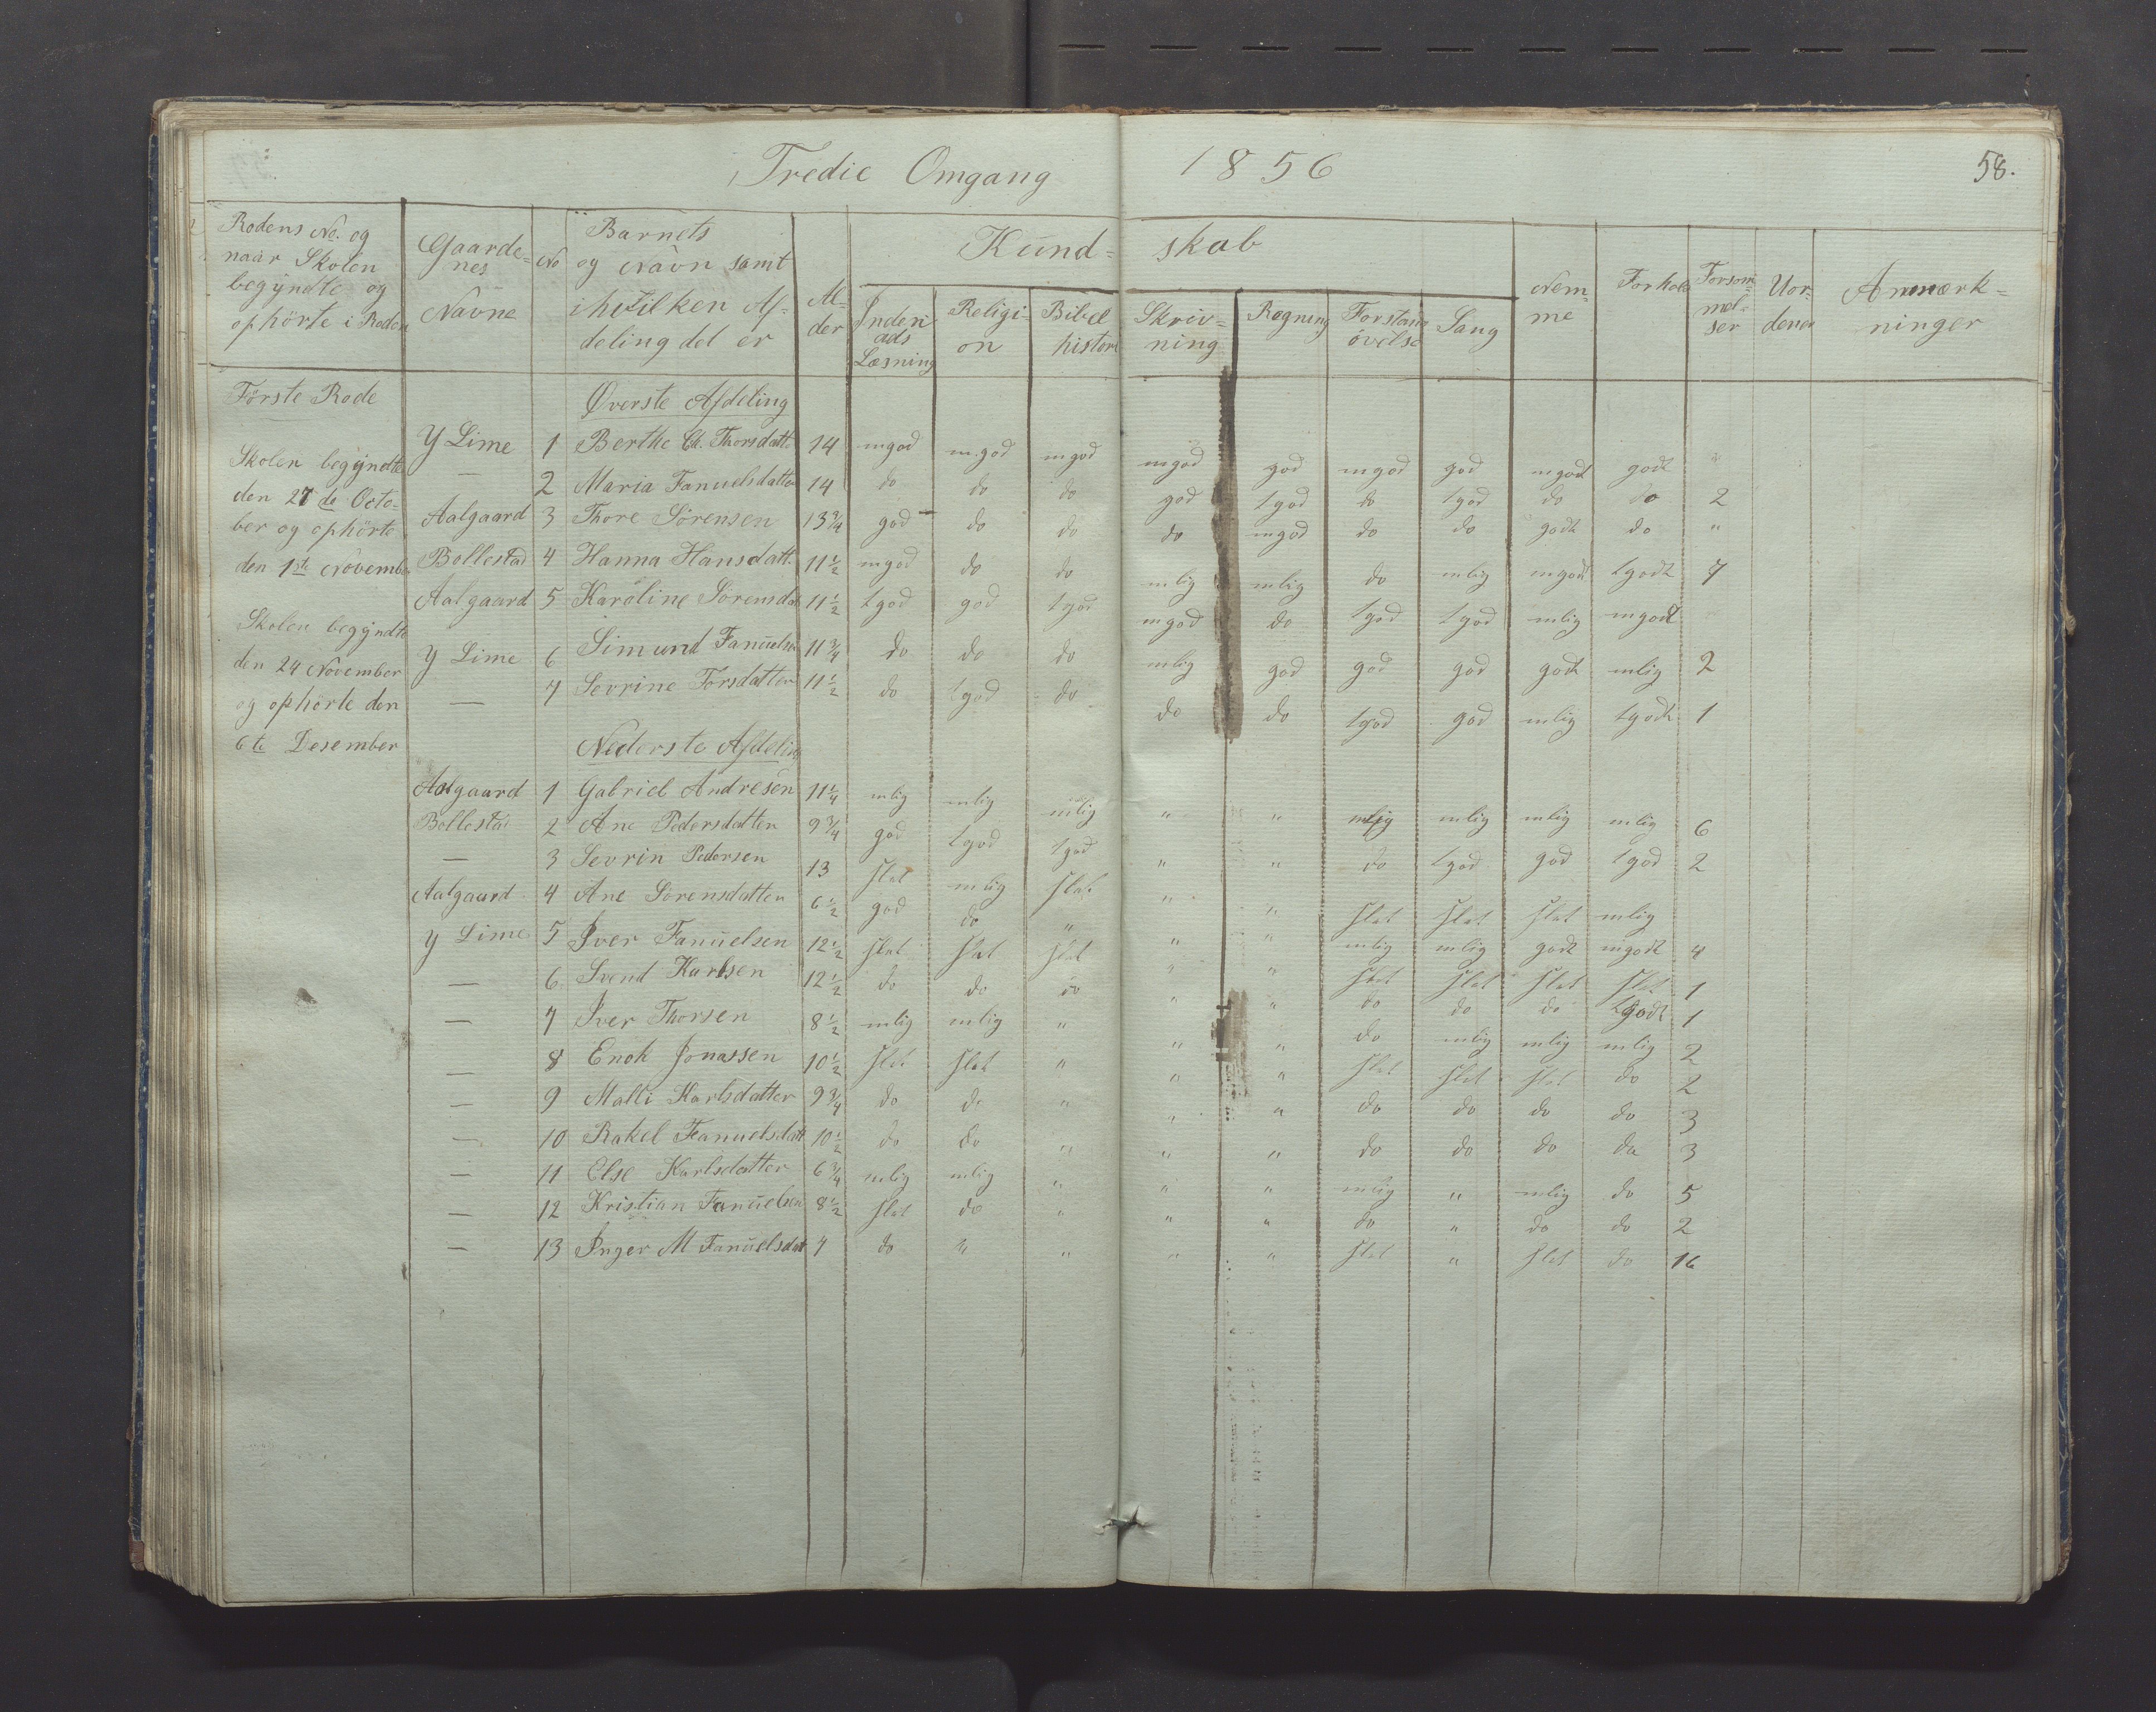 Tredie Omgang 1856 58.
Rodens No. og naar Skolen begyndte og ophörte i Roden | Gaarde= nes Navne | No | Barnets og Navn samt i hvilken Af= deling det er | Al= der | Kund= skab | Nem= me | Forhold | Forsøm= mel= ser | Uor= denen | Anmærk= ninger
Inden ads Læsning | Religi= on | Bibel histori | Skriv= ning | Regning | Forstands övelse | Sang
Förste Rode
Skolen begyndte
den 27de Octo-
ber og ophörte
den 1ste November
Skolen begyndte
den 24 November
og ophörte den
6te Desember
Øverste Afdeling
Y Lime 1 Berthe Thorsdatte 14 mgod m.god mgod mgod god mgod god mgodt godt "
— 2 Maria Fanuelsdatter 14 do do do god tgod do tgod do do 2
Aalgaard 3 Thore Sörensen 13 3/4 god do do do mgod do do godt do "
Bollestad 4 Hanna Hansdatt. 11 1/2 mgod do do mlig mlig do mlig mgodt tgodt 7
Aalgaard 5 Karoline Sörensdat 11 1/2 tgod god tgod mgod do tgod tgod mlig mgodt
Y Lime 6 Simund Fanuelsen 11 3/4 do do do mlig god god god godt mlig 2
— 7 Sevrine Torsdatter 11 1/2 do tgod do do do tgod god mlig tgodt 1
Nederste Afdeling
Aalgaard 1 Gabriel Andresen 11 1/4 mlig mlig mlig " " mlig mlig mlig mlig 6
Bollestad 2 Ane Pedersdatter 9 3/4 god tgod tgod " " do tgod god tgod 2
— 3 Sevrin Pedersen 13 slet mlig slet " " slet slet slet mlig
Aalgaard 4 Ane Sorensdatter 6 1/2 god do " " " mlig mlig godt mgodt 4
Y Lime 5 Iver Fanuelsen 12 1/2 slet slet slet " " slet slet slet slet 1
— 6 Svend Karlsen 12 1/2 do do do " " do do do tgodt 1
— 7 Iver Thorsen 8 1/2 mlig mlig " " " do mlig mlig mlig 2
— 8 Enok Jonassen 10 1/2 slet slet " " " slet slet slet do 2
— 9 Malli Karlsdatter 9 3/4 do do " " " do do do do 3
— 10 Rakel Fanuelsdatt 10 1/2 do do " " " do do do do 3
— 11 Else Karlsdatter 6 3/4 mlig mlig " " " mlig " mlig do 5
— 12 Kristian Fanuelsen 8 1/2 slet do " " " do " do do 2
— 13 Inger M Fanuelsdat 7 do " " " " slet " slet do 16